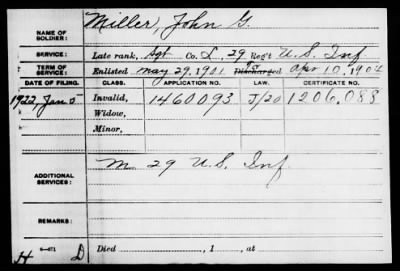 NAME OF SOLDIER: Miller, John G.
SERVICE: Late rank, Sgt Co. L, 29 Reg't U.S. Inf
TERM OF SERVICE: Enlisted May 29, 1901 Discharged Apr 10, 1904
DATE OF FILING. CLASS. APPLICATION NO. LAW. CERTIFICATE NO.
1922, Jan 5 Invalid, 1460093 J/20 1206,088
Widow,
Minor,
ADDITIONAL SERVICES: M 29 U.S. Inf
REMARKS:
Died , 1 , at